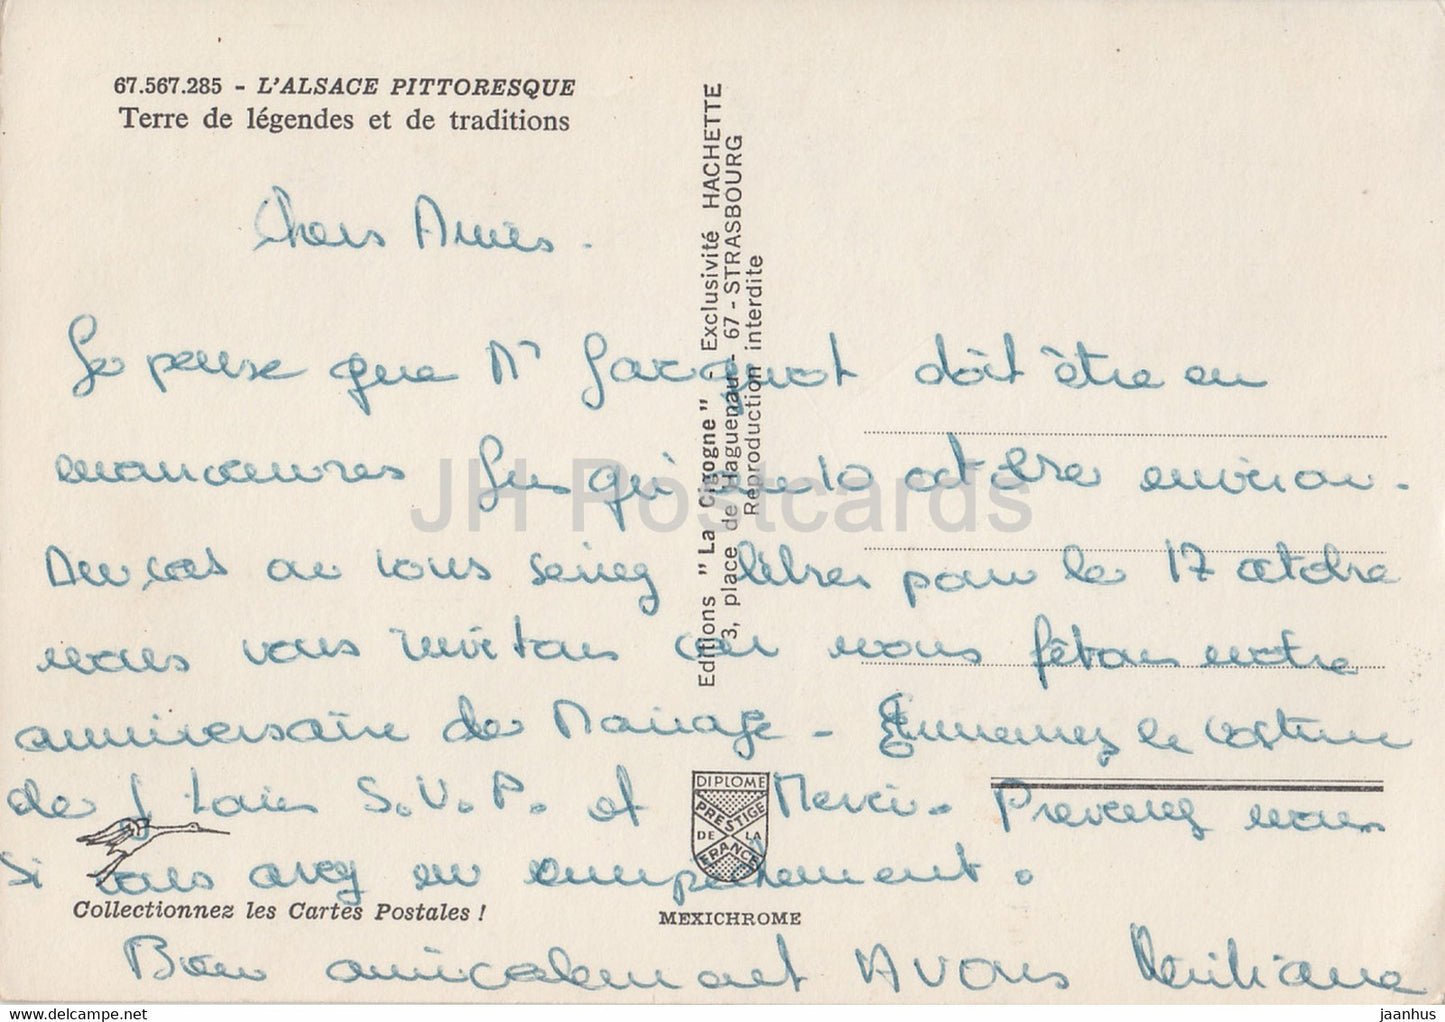 67.567.285 - L'ALSACE PITTORESQUE
Terre de légendes et de traditions
Chers Amies.
Je pense que Mr Jacquot doit être en
manoeuvres Jusqu'au 10 octobre environ.
Au cas ou vous seriez libres pour le 17 octobre
nous vous invitons car nous fêtons notre
anniversaire de Mariage - Emmenez le costume
de S.V.P. et Merci. Prevenez nous
Si vous avez un empêchement.
Bien amicalement A Vous
Editions "La Cigogne" - Exclusivité HACHETTE
3, place de Haguenau - 67 - STRASBOURG
Reproduction interdite
DIPLOME
PRESTIGE
DE LA
FRANCE
Collectionnez les Cartes Postales !
MEXICHROME
JH Postcards
jaanhus